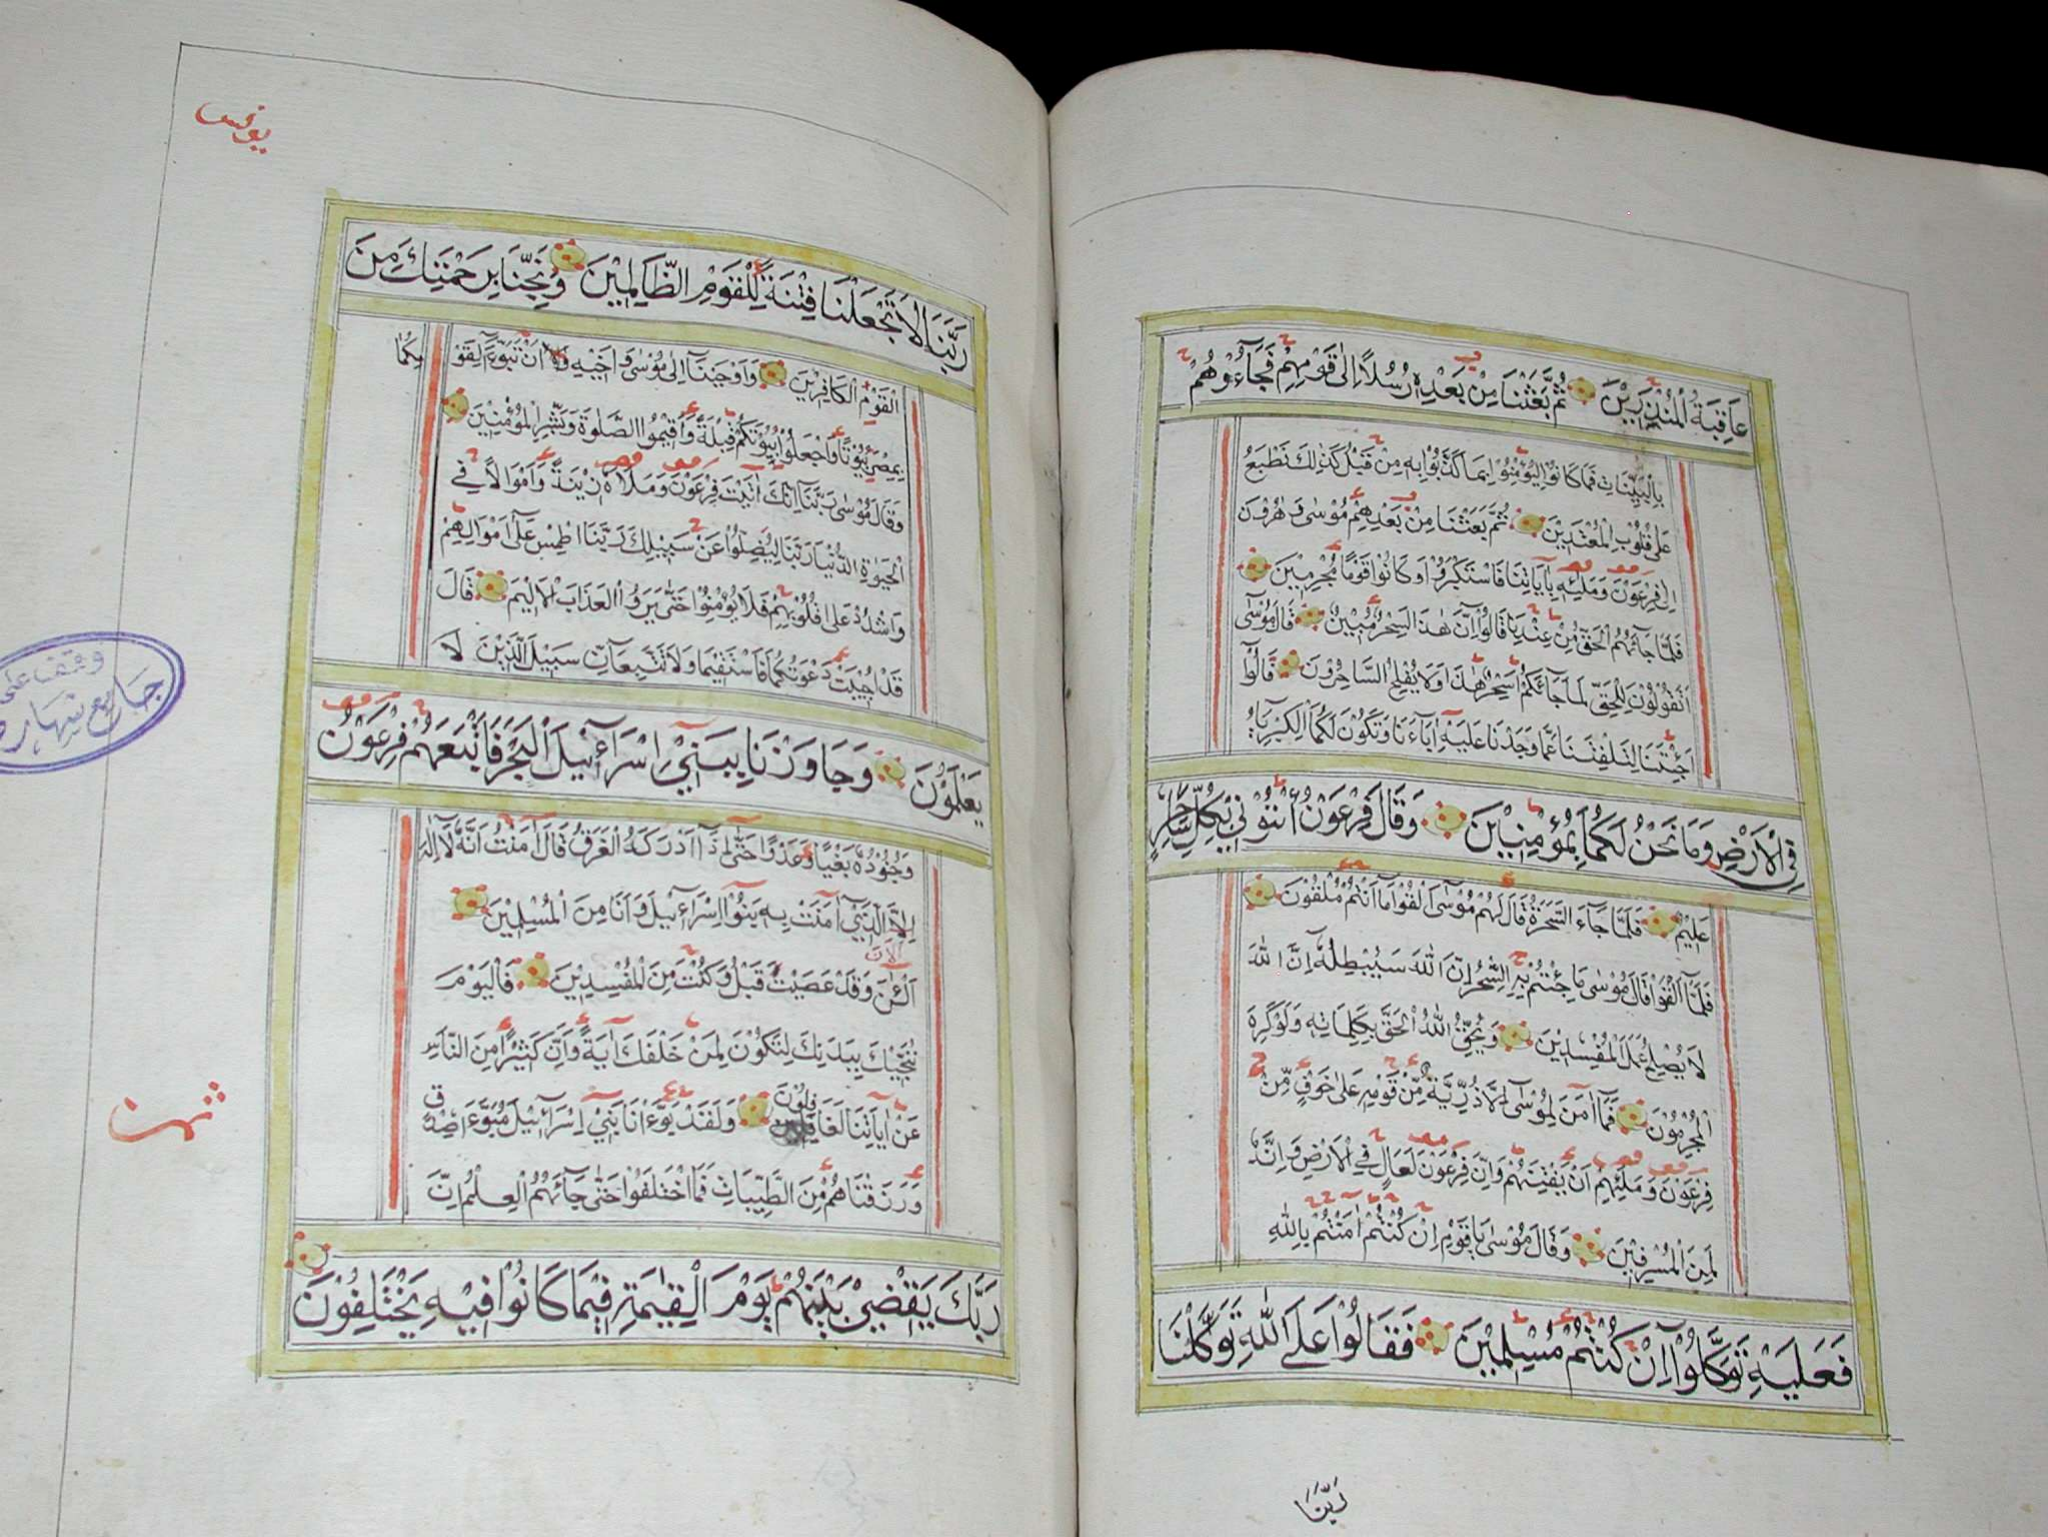 عَاقِبَةُ الْمُنْذَرِيْنَ ثُمَّ بَعَثْنَا مِنْ بَعْدِهِ رُسُلًا اِلٰى قَوْمِهِمْ فَجَآءُوْهُمْ
بِالْبَيِّنَاتِ فَمَا كَانُوْا لِيُؤْمِنُوْا بِمَا كَذَّبُوْا بِهِ مِنْ قَبْلُ كَذٰلِكَ نَطْبَعُ
عَلٰى قُلُوْبِ الْمُعْتَدِيْنَ ثُمَّ بَعَثْنَا مِنْ بَعْدِهِمْ مُوْسٰى وَهٰرُوْنَ
اِلٰى فِرْعَوْنَ وَمَلَئِهِ بِاٰيَاتِنَا فَاسْتَكْبَرُوْا وَكَانُوْا قَوْمًا مُجْرِمِيْنَ
فَلَمَّا جَائَهُمُ الْحَقُّ مِنْ عِنْدِنَا قَالُوْا اِنَّ هٰذَا لَسِحْرٌ مُبِيْنٌ قَالَ مُوْسٰى
اَتَقُوْلُوْنَ لِلْحَقِّ لَمَّا جَائَكُمْ اَسِحْرٌ هٰذَا وَلَا يُفْلِحُ السَّاحِرُوْنَ قَالُوْا
اَجِئْتَنَا لِتَلْفِتَنَا عَمَّا وَجَدْنَا عَلَيْهِ اٰبَاءَنَا وَتَكُوْنَ لَكُمَا الْكِبْرِيَاءُ
فِي الْاَرْضِ وَمَا نَحْنُ لَكُمَا بِمُؤْمِنِيْنَ وَقَالَ فِرْعَوْنُ ائْتُوْنِيْ بِكُلِّ سَاحِرٍ
عَلِيْمٍ فَلَمَّا جَآءَ السَّحَرَةُ قَالَ لَهُمْ مُوْسٰى اَلْقُوْا مَا اَنْتُمْ مُلْقُوْنَ
فَلَمَّا اَلْقَوْا قَالَ مُوْسٰى مَا جِئْتُمْ بِهِ السِّحْرُ اِنَّ اللّٰهَ سَيُبْطِلُهُ اِنَّ اللّٰهَ
لَا يُصْلِحُ عَمَلَ الْمُفْسِدِيْنَ وَيُحِقُّ اللّٰهُ الْحَقَّ بِكَلِمَاتِهِ وَلَوْ كَرِهَ
الْمُجْرِمُوْنَ فَمَا اٰمَنَ لِمُوْسٰى اِلَّا ذُرِّيَّةٌ مِّنْ قَوْمِهِ عَلٰى خَوْفٍ مِّنْ
فِرْعَوْنَ وَمَلَئِهِمْ اَنْ يَفْتِنَهُمْ وَاِنَّ فِرْعَوْنَ لَعَالٍ فِي الْاَرْضِ وَاِنَّهُ
لَمِنَ الْمُسْرِفِيْنَ وَقَالَ مُوْسٰى يَا قَوْمِ اِنْ كُنْتُمْ اٰمَنْتُمْ بِاللّٰهِ
فَعَلَيْهِ تَوَكَّلُوْا اِنْ كُنْتُمْ مُسْلِمِيْنَ فَقَالُوْا عَلَى اللّٰهِ تَوَكَّلْنَا
رَبَّنَا
يونس
رَبَّنَا لَا تَجْعَلْنَا فِتْنَةً لِلْقَوْمِ الظَّالِمِيْنَ وَنَجِّنَا بِرَحْمَتِكَ مِنَ
الْقَوْمِ الْكَافِرِيْنَ وَاَوْحَيْنَا اِلٰى مُوْسٰى وَاَخِيْهِ اَنْ تَبَوَّءَا لِقَوْمِكُمَا
بِمِصْرَ بُيُوْتًا وَاجْعَلُوْا بُيُوْتَكُمْ قِبْلَةً وَاَقِيْمُوا الصَّلٰوةَ وَبَشِّرِ الْمُؤْمِنِيْنَ
وَقَالَ مُوْسٰى رَبَّنَا اِنَّكَ اٰتَيْتَ فِرْعَوْنَ وَمَلَاَهُ زِيْنَةً وَاَمْوَالًا فِي
الْحَيٰوةِ الدُّنْيَا رَبَّنَا لِيُضِلُّوْا عَنْ سَبِيْلِكَ رَبَّنَا اطْمِسْ عَلٰى اَمْوَالِهِمْ
وَاشْدُدْ عَلٰى قُلُوْبِهِمْ فَلَا يُؤْمِنُوْا حَتّٰى يَرَوُا الْعَذَابَ الْاَلِيْمَ قَالَ
قَدْ اُجِيْبَتْ دَعْوَتُكُمَا فَاسْتَقِيْمَا وَلَا تَتَّبِعَانِّ سَبِيْلَ الَّذِيْنَ لَا
يَعْلَمُوْنَ وَجَاوَزْنَا بِبَنِيْ اِسْرَآئِيْلَ الْبَحْرَ فَاَتْبَعَهُمْ فِرْعَوْنُ
وَجُنُوْدُهُ بَغْيًا وَعَدْوًا حَتّٰى اِذَا اَدْرَكَهُ الْغَرَقُ قَالَ اٰمَنْتُ اَنَّهُ لَا اِلٰهَ
اِلَّا الَّذِيْ اٰمَنَتْ بِهِ بَنُوْا اِسْرَآئِيْلَ وَاَنَا مِنَ الْمُسْلِمِيْنَ
الان
آلْئٰنَ وَقَدْ عَصَيْتَ قَبْلُ وَكُنْتَ مِنَ الْمُفْسِدِيْنَ فَالْيَوْمَ
نُنَجِّيْكَ بِبَدَنِكَ لِتَكُوْنَ لِمَنْ خَلْفَكَ اٰيَةً وَاِنَّ كَثِيْرًا مِنَ النَّاسِ
عَنْ اٰيَاتِنَا لَغَافِلُوْنَ وَلَقَدْ بَوَّءْنَا بَنِيْ اِسْرَآئِيْلَ مُبَوَّءَ صِدْقٍ
وَرَزَقْنَاهُمْ مِنَ الطَّيِّبَاتِ فَمَا اخْتَلَفُوْا حَتّٰى جَائَهُمُ الْعِلْمُ اِنَّ
رَبَّكَ يَقْضِيْ بَيْنَهُمْ يَوْمَ الْقِيٰمَةِ فِيْمَا كَانُوْا فِيْهِ يَخْتَلِفُوْنَ
وقف على
جامع